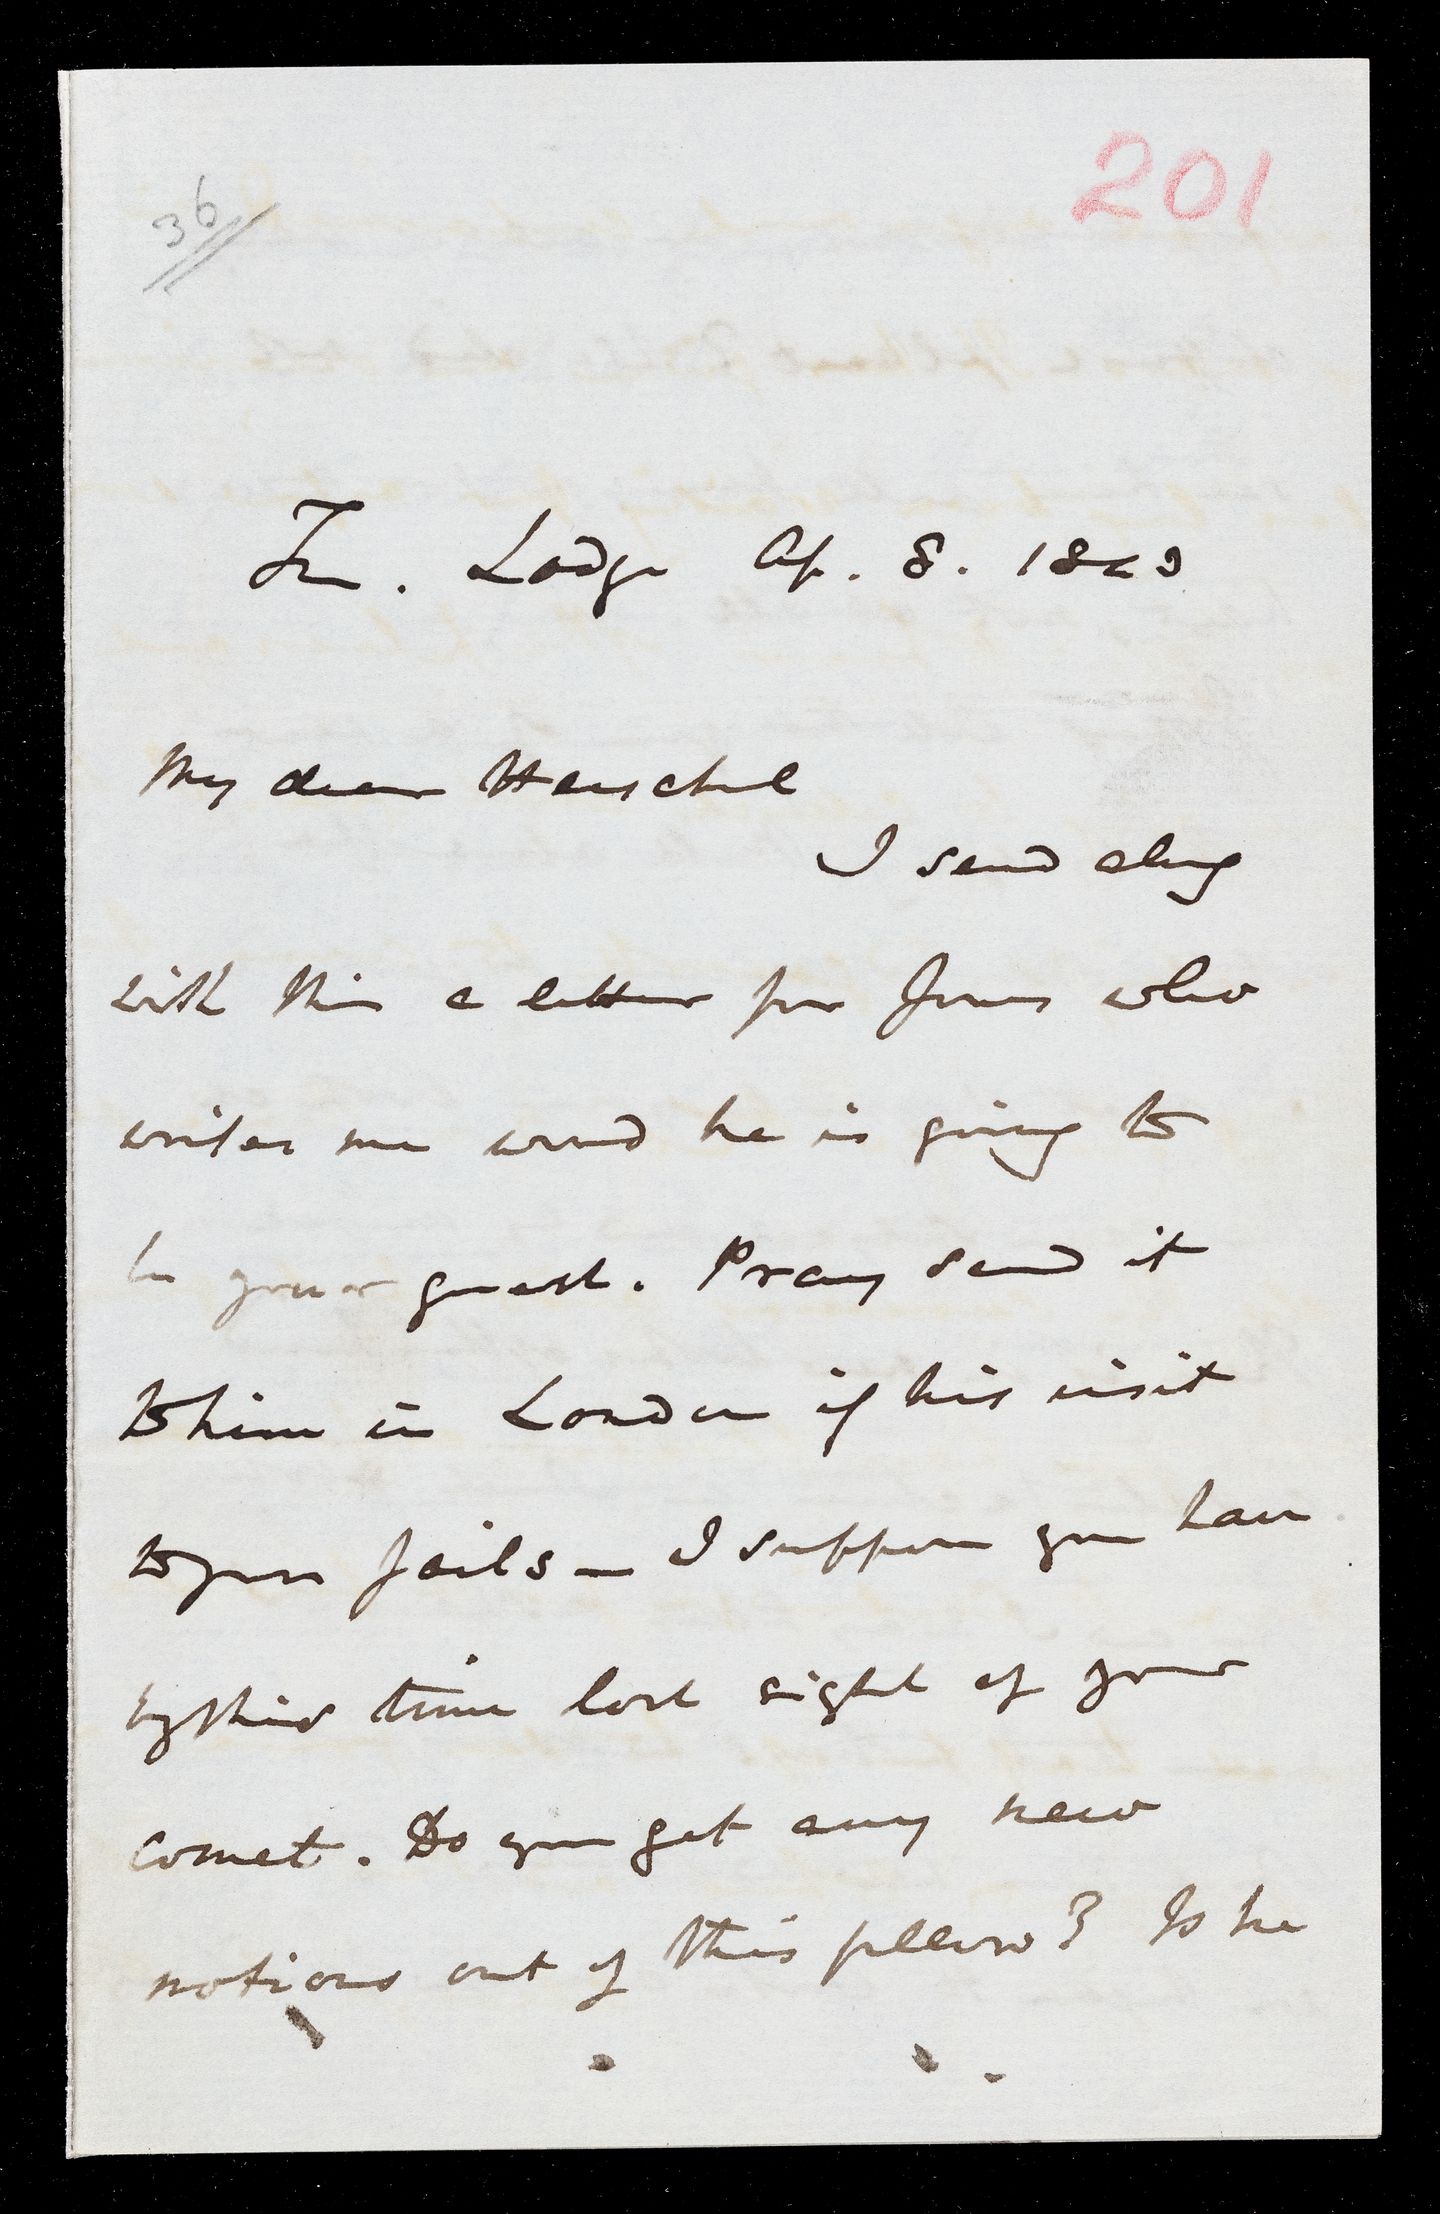 201
36
Tr. Lodge Ap. 8. 1843
My dear Herschel
I send along
with this a letter for Jones who
writes me word he is going to
be your guest. Pray send it
to him in London if his visit
to you fails — I suppose you have
by this time lost sight of your
comet. Do you get any new
notions out of this fellow? Is he